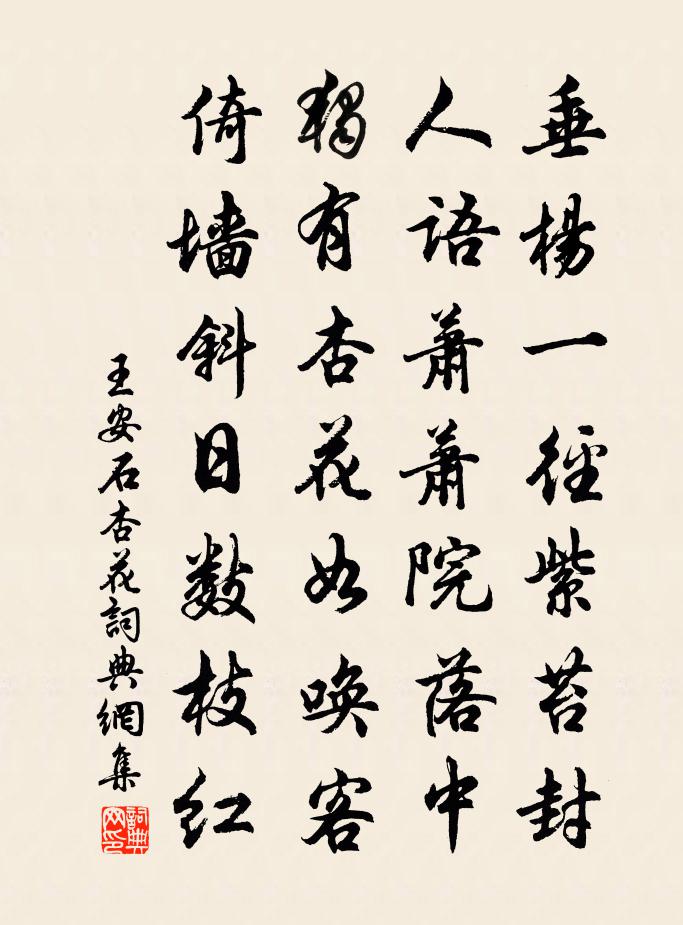 垂楊一徑紫苔封
人語蕭蕭院落中
獨有杏花如喚客
倚墻斜日數枝紅
王安石杏花詞典網集
詞典网印